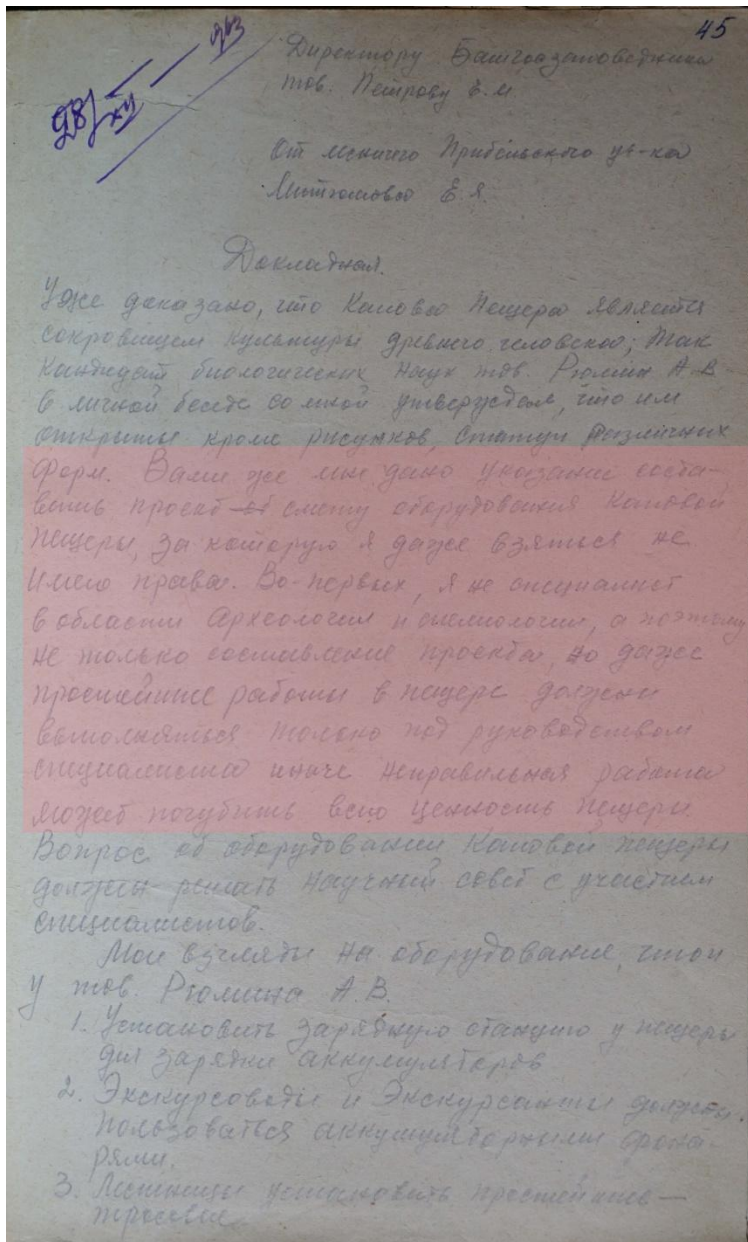 45
28/XII 963
Директору Башгосзаповедника
тов. Петрову Е.М.
От лесничего Прибельского уч-ка
Е.Я.
Докладная.
Уже доказано, что Капова пещера является
сокровищем культуры древнего человека; Так
кандидат биологических наук тов. Рюмин А.В
в личной беседе со мной утверждал, что им
открыты кроме рисунков, статуи различных
форм. Вами же мне дано указание соста-
вить проект смету оборудования Каповой
пещеры, за которую я даже взяться не
имею права. Во-первых, я не специалист
в области Археологии и спелиологии, а поэтому
не только составление проекта, но даже
простейшие работы в пещере должны
выполняться только под руководством
специалиста иначе неправильная работа
может погубить всю ценность пещеры.
Вопрос об оборудовании Каповой пещеры
должен решать научный совет с участием
специалистов.
Мои взгляды на оборудование, что и
у тов. Рюмина А.В.
1. Установить зарядную станцию у пещеры
для зарядки аккумуляторов
2. Экскурсоводы и Экскурсанты должны
пользоваться аккумуляторными фона-
рями.
3. Лестницы установить простейшие —
тросовые